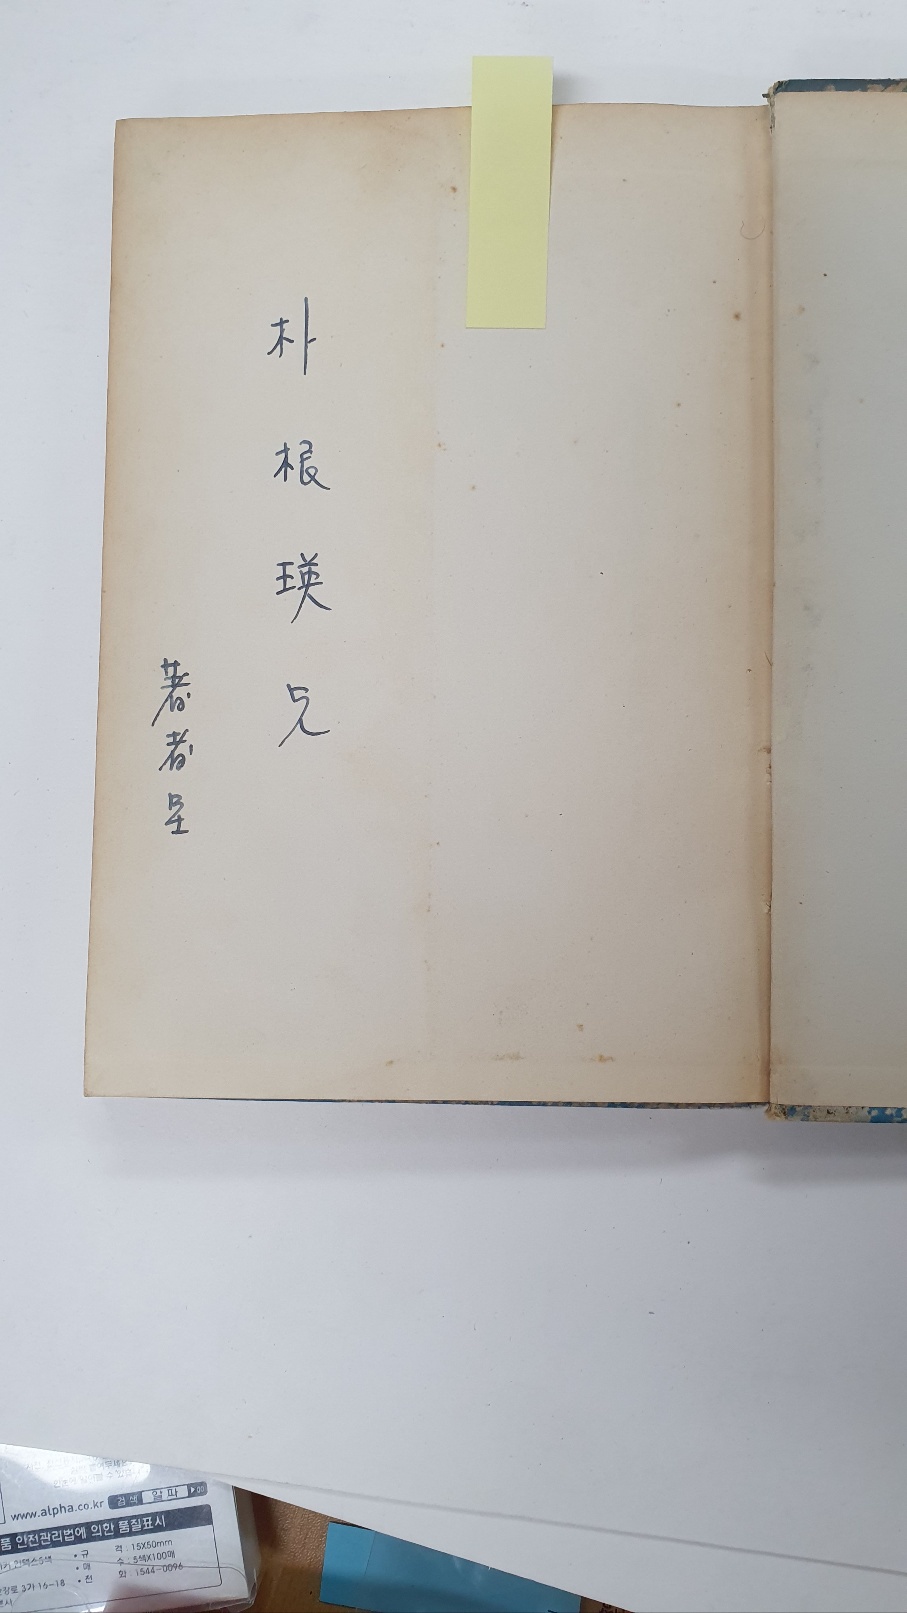 朴根瑛兄
著者呈
www.alpha.co.kr 검색 알파
품 안전관리법에 의한 품질표시
•규 격 : 15X50mm
•매 수 : 5색X100매
•전 화 : 1544-0096
3가 16-18